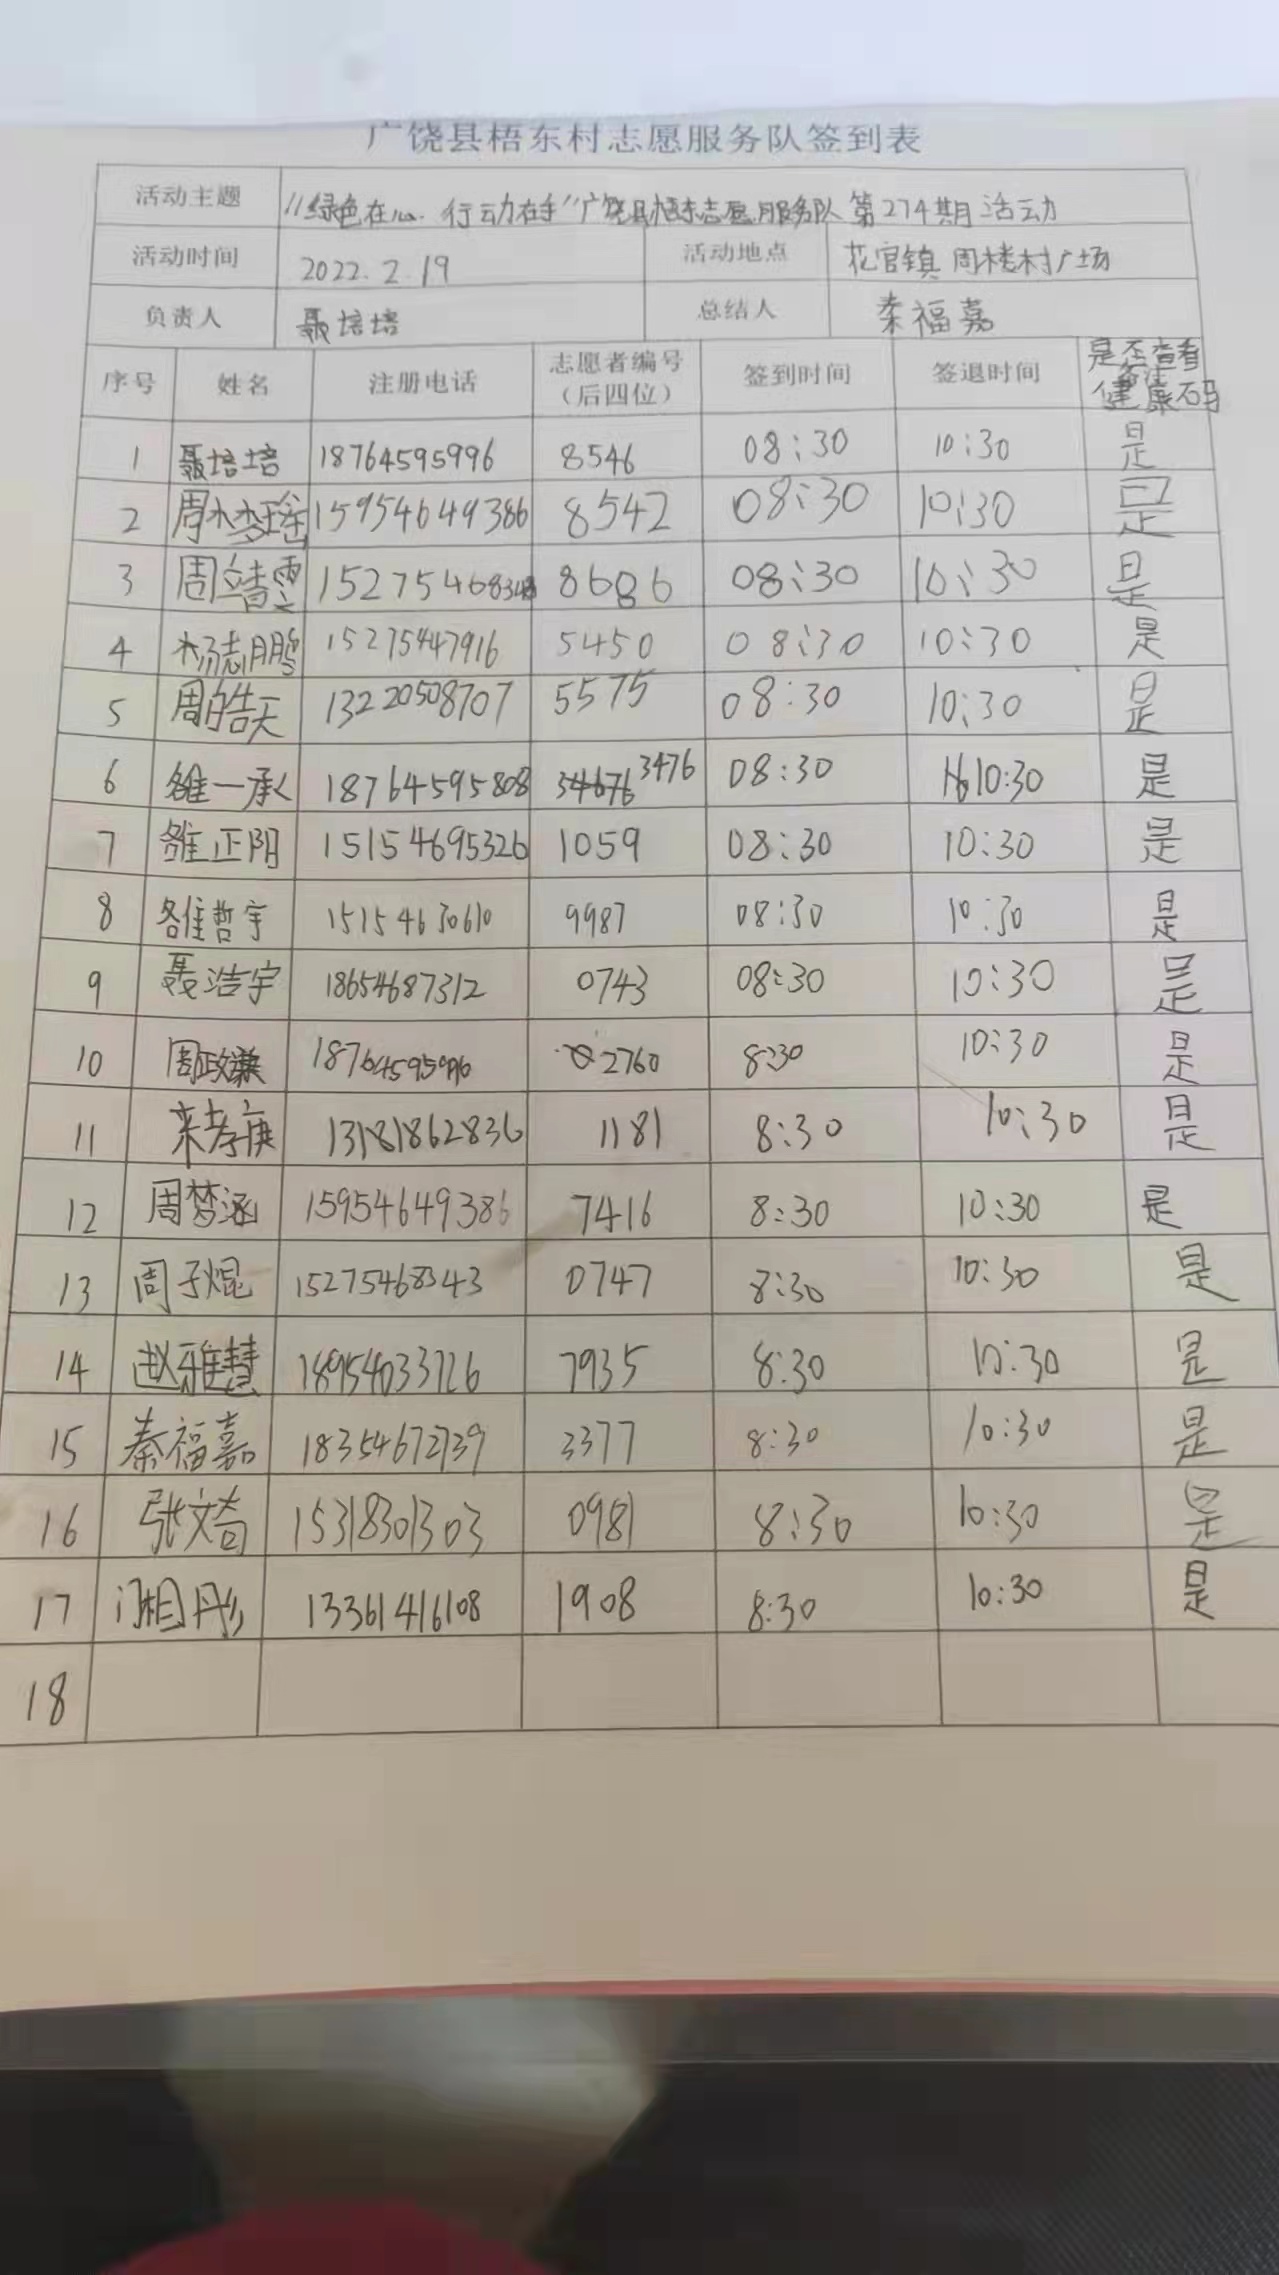 广饶县梧东村志愿服务队签到表
活动主题 "绿色在心 行动在手"广饶县梧东志愿服务队第274期活动
活动时间 2022.2.19 活动地点 花官镇周楼村广场
负责人 聂培培 总结人 秦福嘉
序号 姓名 注册电话 志愿者编号（后四位） 签到时间 签退时间 是否查看健康码
1 聂培培 18764595996 8546 08:30 10:30 是
2 周梦瑶 15954649386 8542 08:30 10:30 是
3 周靖雯 15275468343 8686 08:30 10:30 是
4 杨志鹏 15275447916 5450 08:30 10:30 是
5 周皓天 13220508707 5575 08:30 10:30 是
6 雒一承 18764595808 3476 08:30 10:30 是
7 雒正阳 15154695326 1059 08:30 10:30 是
8 雒哲宇 15154630610 9987 08:30 10:30 是
9 聂浩宇 18654687312 0743 08:30 10:30 是
10 周政 18764595996 2760 8:30 10:30 是
11 孝庚 13181862836 1181 8:30 10:30 是
12 周梦涵 15954649386 7416 8:30 10:30 是
13 周子焜 15275468343 0747 8:30 10:30 是
14 赵雅慧 18954033726 7935 8:30 10:30 是
15 秦福嘉 18354672739 3377 8:30 10:30 是
16 张文奇 15318301303 0981 8:30 10:30 是
17 门相彤 13361416108 1908 8:30 10:30 是
18